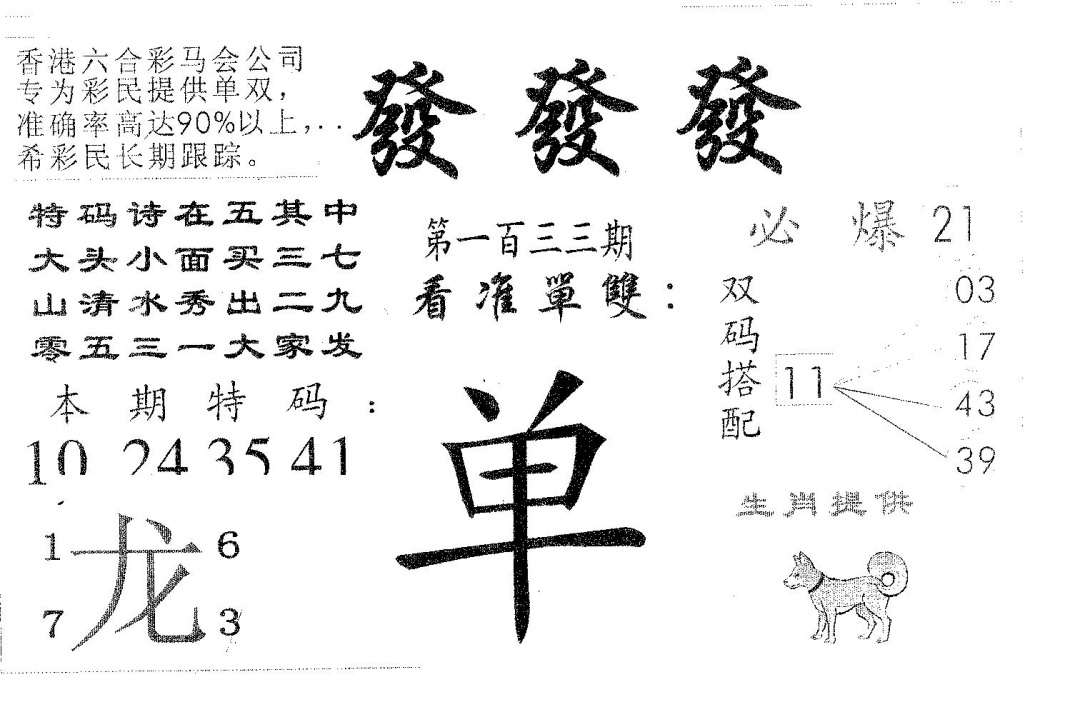 香港六合彩马会公司
专为彩民提供单双，
准确率高达90%以上，..
希彩民长期跟踪。
發 發 發
特码诗在五其中
大头小面买三七
山清水秀出二九
零五三一大家发
本期特码：
10 24 35 41
1 龙 6
7 3
第一百三三期
看准單雙：
单
必爆21
双码搭配
11
03
17
43
39
生肖提供